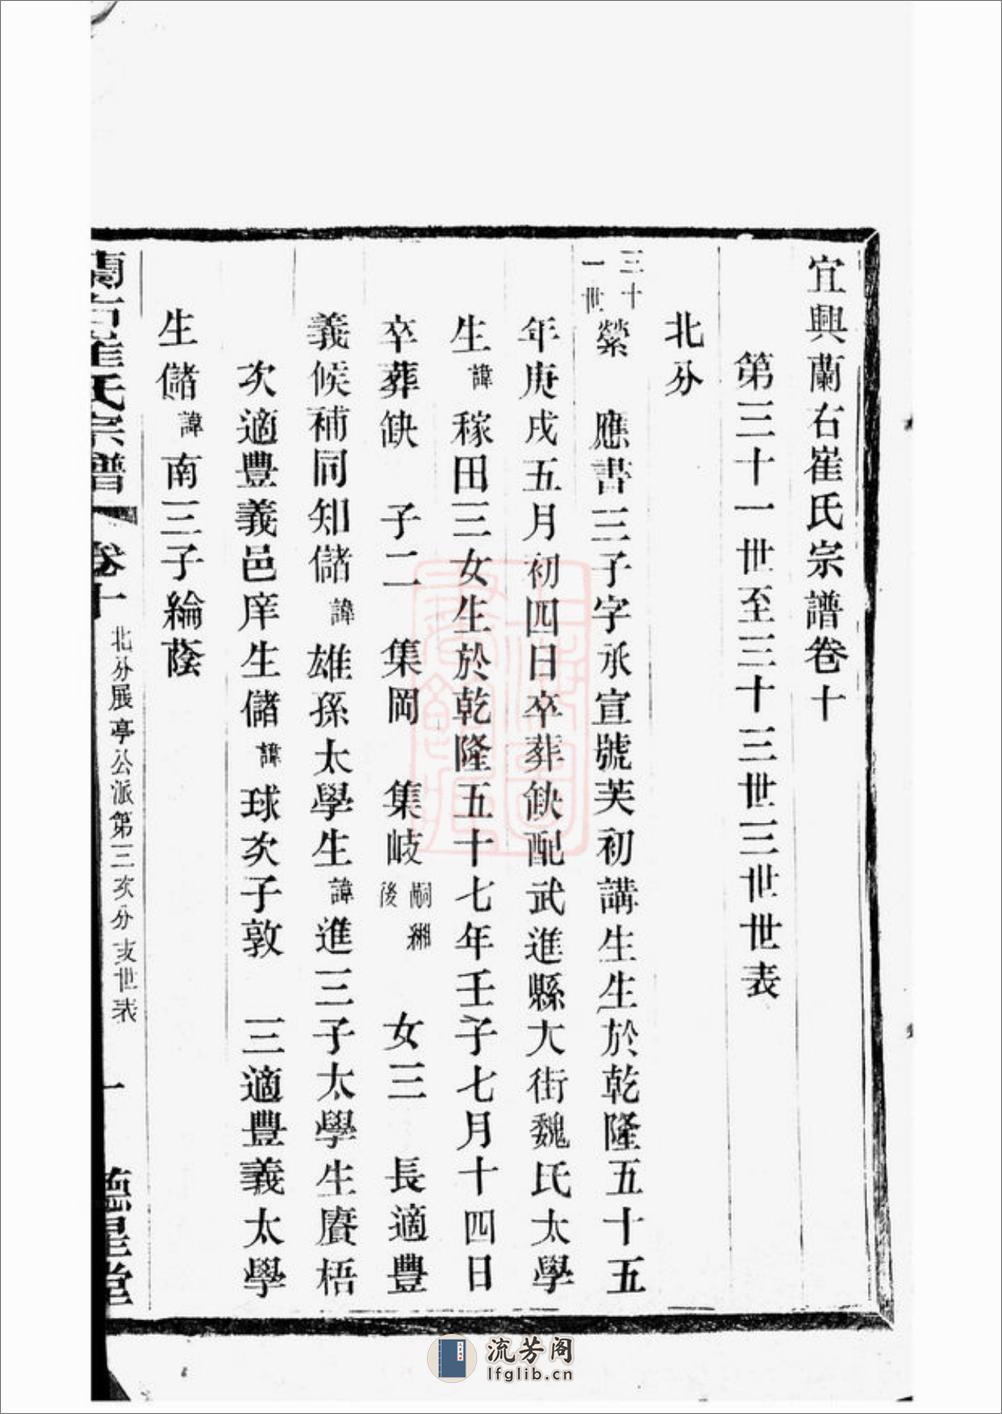 宜興蘭右崔氏宗譜卷十
第三十一世至三十三世三世世表
北分
三十一世
縈　應書三子字承宣號芙初講生生於乾隆五十五
年庚戌五月初四日卒葬缺配武進縣大街魏氏太學
生諱稼田三女生於乾隆五十七年壬子七月十四日
卒葬缺　子二　集岡　集岐嗣緗後　女三　長適豐
義候補同知儲諱雄孫太學生諱進三子太學生賡梧
次適豐義邑庠生儲諱球次子敦　三適豐義太學
生儲諱南三子綸蔭
蘭右崔氏宗譜　卷十　北分展亭公派第三次分支世表　一　德星堂
流芳阁
lfglib.cn